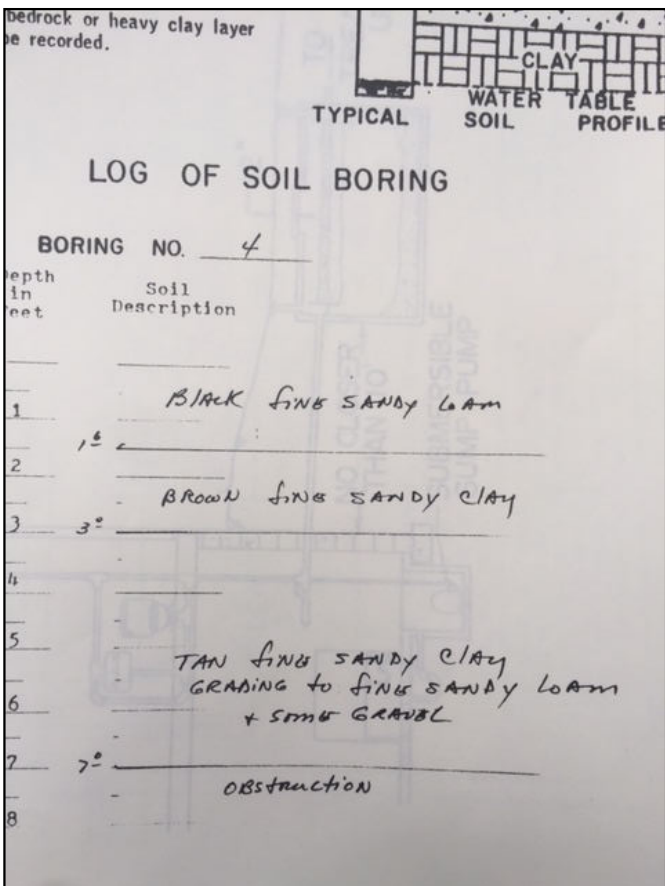 bedrock or heavy clay layer
be recorded.
CLAY
WATER TABLE
TYPICAL SOIL PROFILE
LOG OF SOIL BORING
BORING NO. 4
epth
in
eet
Soil
Description
BLACK FINE SANDY LOAM
1
1 6
2
BROWN FINE SANDY CLAY
3 3 0
4
5
TAN FINE SANDY CLAY
GRADING to FINE SANDY LOAM
6
+ SOME GRAVEL
7 7 0
OBStruction
8
NO CLOSER
THAN 10
SUBMERSIBLE
SUMP PUMP